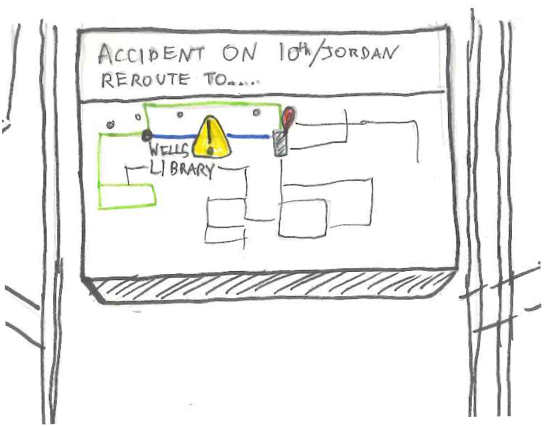 ACCIDENT ON 10th/JORDAN
REROUTE TO.....
WELLS
LIBRARY